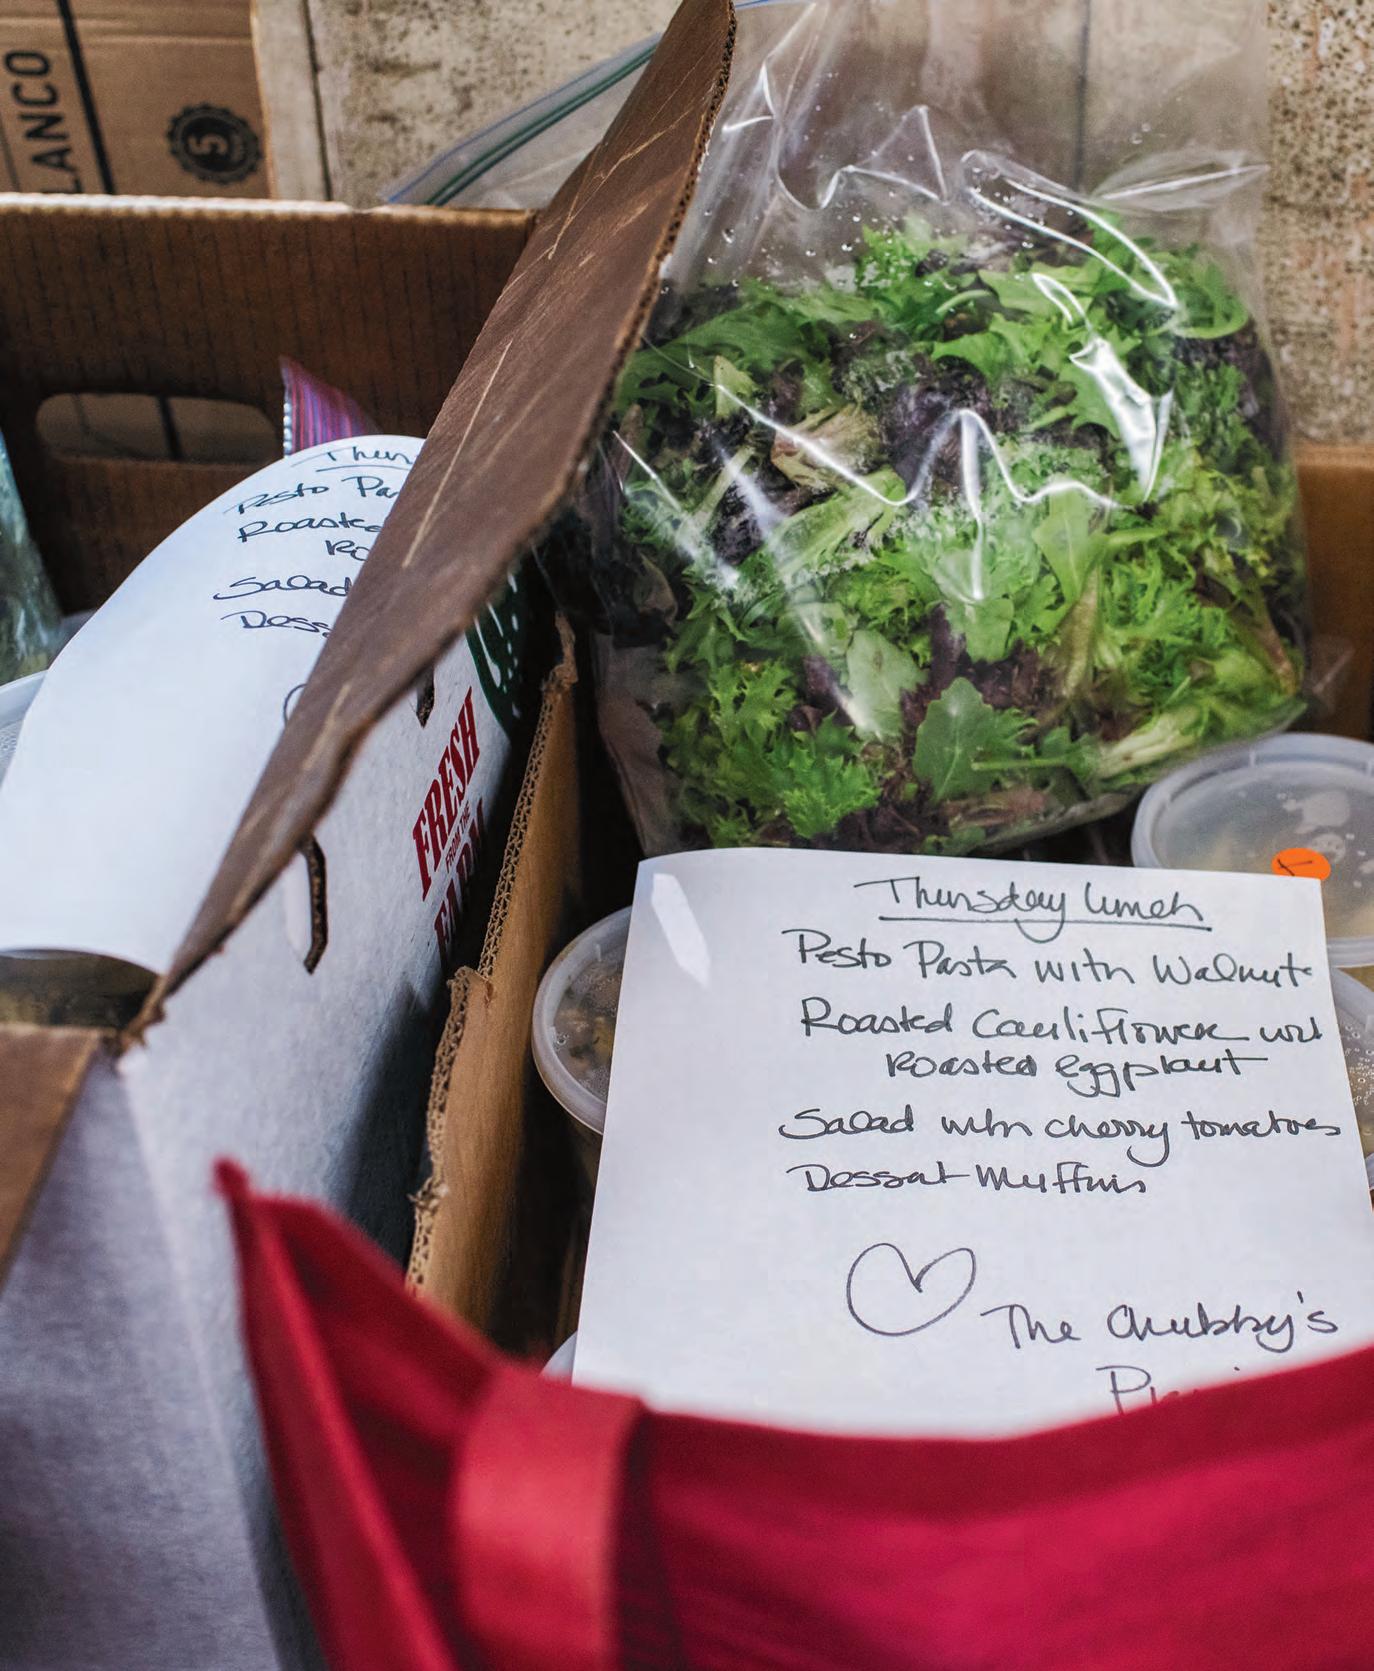 LANCO
5
Thur
Pesto Pa
Roaste
Ro
Salad
Dess
FRESH
FROM THE
FARM
Thursday lunch
Pesto Pasta with Walnuts
Roasted Cauliflower with
Roasted eggplant
Salad with cherry tomatoes
Dessert Muffins
The Chubby's